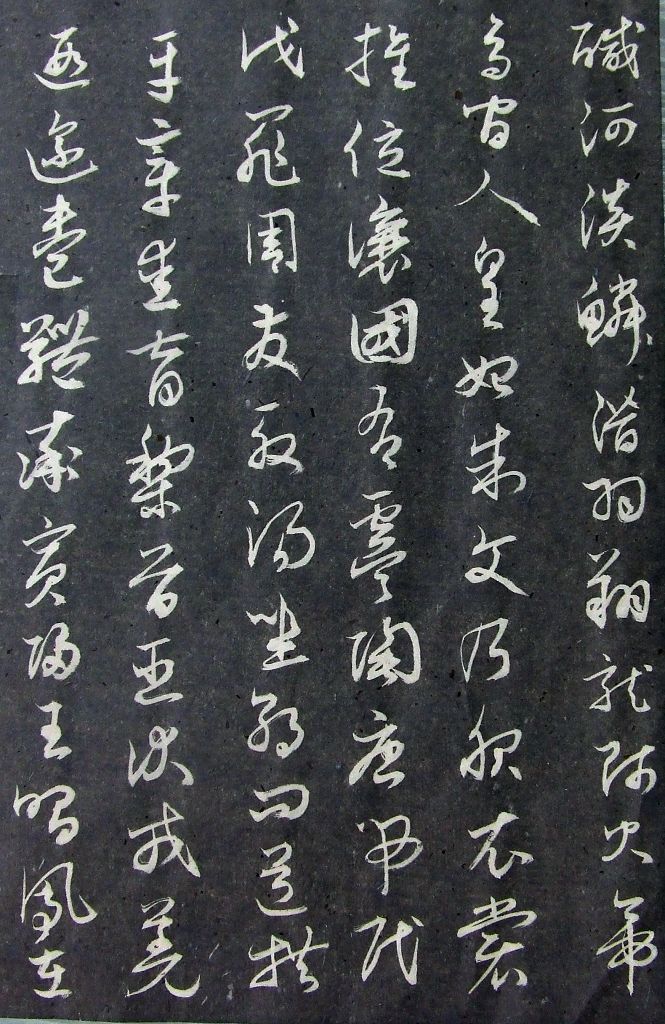 醎河淡鱗潛羽翔龍師火帝
鳥官人皇始制文乃服衣裳
推位讓國有虞陶唐弔民
伐罪周發殷湯坐朝問道拱
平章愛育黎首臣伏戎羌
遐邇壹體率賓歸王鳴鳳在